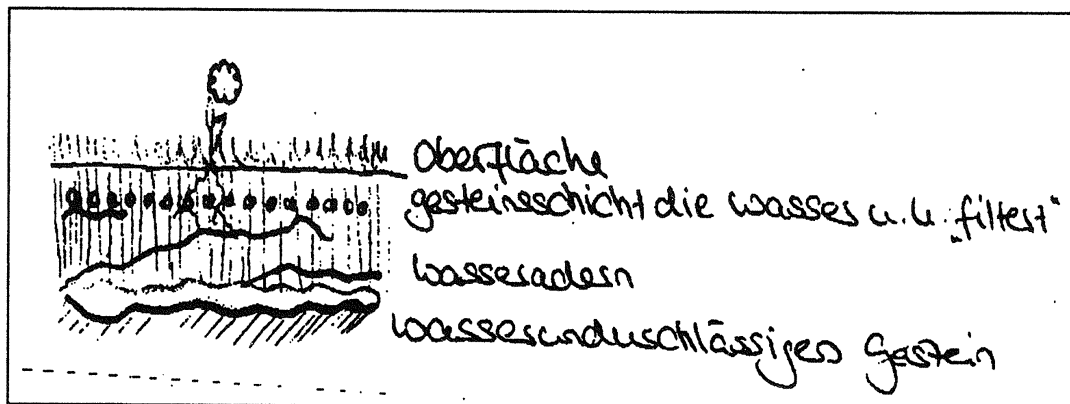 Oberfläche
gesteinsschicht die wasser u.U. „filtert“
wasseradern
wasserunduschlässiges Gestein